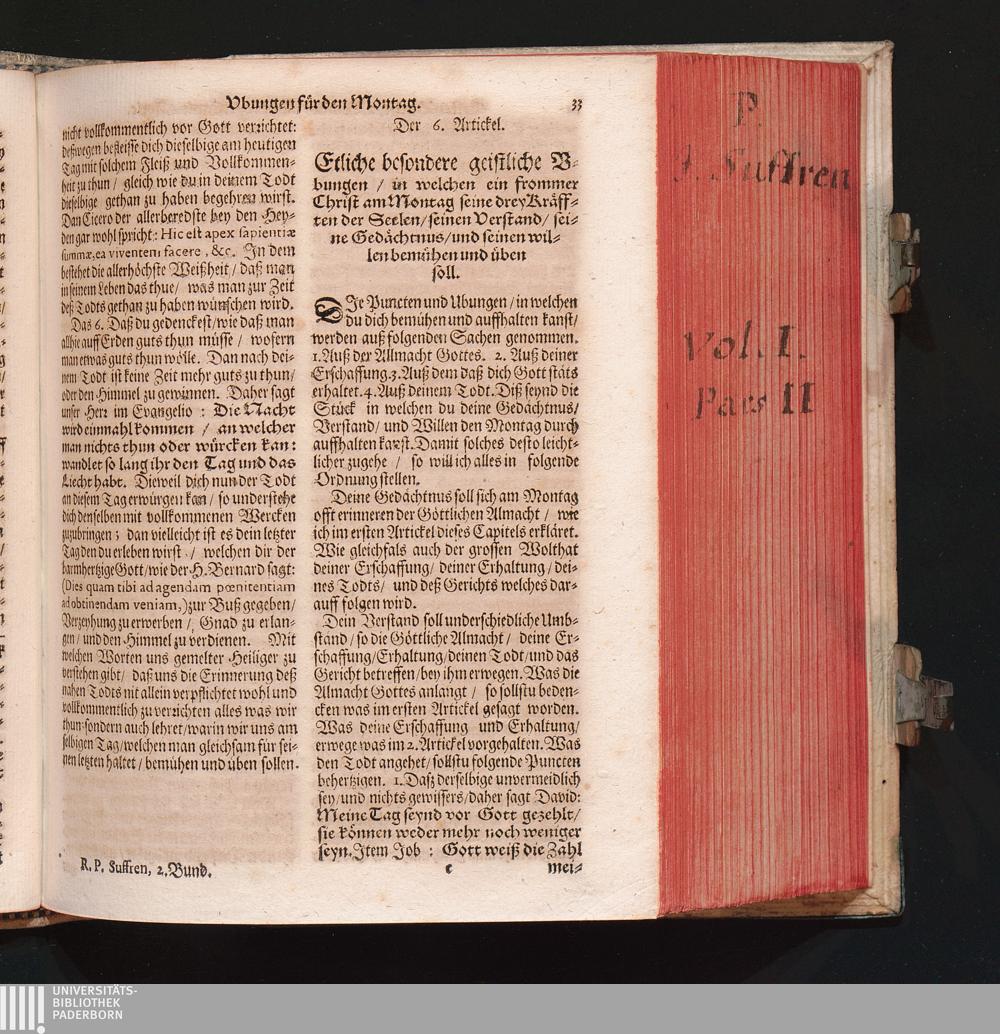 Vbungen für den Montag. 33
nicht vollkommentlich vor Gott verzichtet:
deßwegen befleisse dich dieselbige am heutigen
Tag mit solchem Fleiß und Vollkommen-
heit zu thun / gleich wie du in deinem Todt
dieselbige gethan zu haben begehren wirst.
Dan Cicero der allerberedste bey den Hey-
den gar wohl spricht: Hic est apex sapientiæ
summæ, ea viventem facere, &c. In dem
bestehet die allerhöchste Weißheit / daß man
in seinem Leben das thue / was man zur Zeit
deß Todts gethan zu haben wünschen wird.
Das 6. Daß du gedenckest / wie daß man
allhie auff Erden guts thun müsse / wofern
man etwas guts thun wölle. Dan nach dei-
nem Todt ist keine Zeit mehr guts zu thun /
oder den Himmel zu gewinnen. Daher sagt
unser Herr im Evangelio : Die Nacht
wird einmahl kommen / an welcher
man nichts thun oder würcken kan:
wandlet so lang ihr den Tag und das
Liecht habt. Dieweil dich nun der Todt
an diesem Tag erwürgen kan / so understehe
dich denselben mit vollkommenen Wercken
zuzubringen; dan vielleicht ist es dein letzter
Tag den du erleben wirst / welchen dir der
barmhertzige Gott / wie der H. Bernard sagt:
(Dies quam tibi ad agendam pœnitentiam
ad obtinendam veniam,) zur Buß gegeben /
Verzeyhung zu erwerben / Gnad zu erlan-
gen / und den Himmel zu verdienen. Mit
welchen Worten uns gemelter Heiliger zu
verstehen gibt / daß uns die Erinnerung deß
nahen Todts nit allein verpflichtet wohl und
vollkommentlich zu verzichten alles was wir
thun: sondern auch lehret / warin wir uns am
selbigen Tag / welchen man gleichsam für sei-
nen letzten haltet / bemühen und üben sollen.
R. P. Suffren, 2. Bund.
Der 6. Artickel.
Etliche besondere geistliche V-
bungen / in welchen ein frommer
Christ am Montag seine drey Kräff-
ten der Seelen / seinen Verstand / sei-
ne Gedächtnus / und seinen wil-
len bemühen und üben
soll.
DJe Puncten und Ubungen / in welchen
du dich bemühen und auffhalten kanst /
werden auß folgenden Sachen genommen.
1. Auß der Allmacht Gottes. 2. Auß deiner
Erschaffung. 3. Auß dem daß dich Gott stäts
erhaltet. 4. Auß deinem Todt. Diß seynd die
Stück in welchen du deine Gedächtnus /
Verstand / und Willen den Montag durch
auffhalten kanst. Damit solches desto leicht-
licher zugehe / so will ich alles in folgende
Ordnung stellen.
Deine Gedächtnus soll sich am Montag
offt erinneren der Göttlichen Almacht / wie
ich im ersten Artickel dieses Capitels erkläret.
Wie gleichfals auch der grossen Wolthat
deiner Erschaffung / deiner Erhaltung / dei-
nes Todts / und deß Gerichts welches dar-
auff folgen wird.
Dein Verstand soll underschiedliche Umb-
stand / so die Göttliche Almacht / deine Er-
schaffung / Erhaltung / deinen Todt / und das
Gericht betreffen / bey ihm erwegen. Was die
Almacht Gottes anlangt / so sollstu beden-
cken was im ersten Artickel gesagt worden.
Was deine Erschaffung und Erhaltung /
erwege was im 2. Artickel vorgehalten. Was
den Todt angehet / sollstu folgende Puncten
behertzigen. 1. Daß derselbige unvermeidlich
sey / und nichts gewissers / daher sagt David:
Meine Tag seynd vor Gott gezehlt /
sie können weder mehr noch weniger
seyn. Item Job : Gott weiß die Zahl
c mei-
P.
J. Suffren
Vol. I.
Pars II
UNIVERSITÄTS-
BIBLIOTHEK
PADERBORN